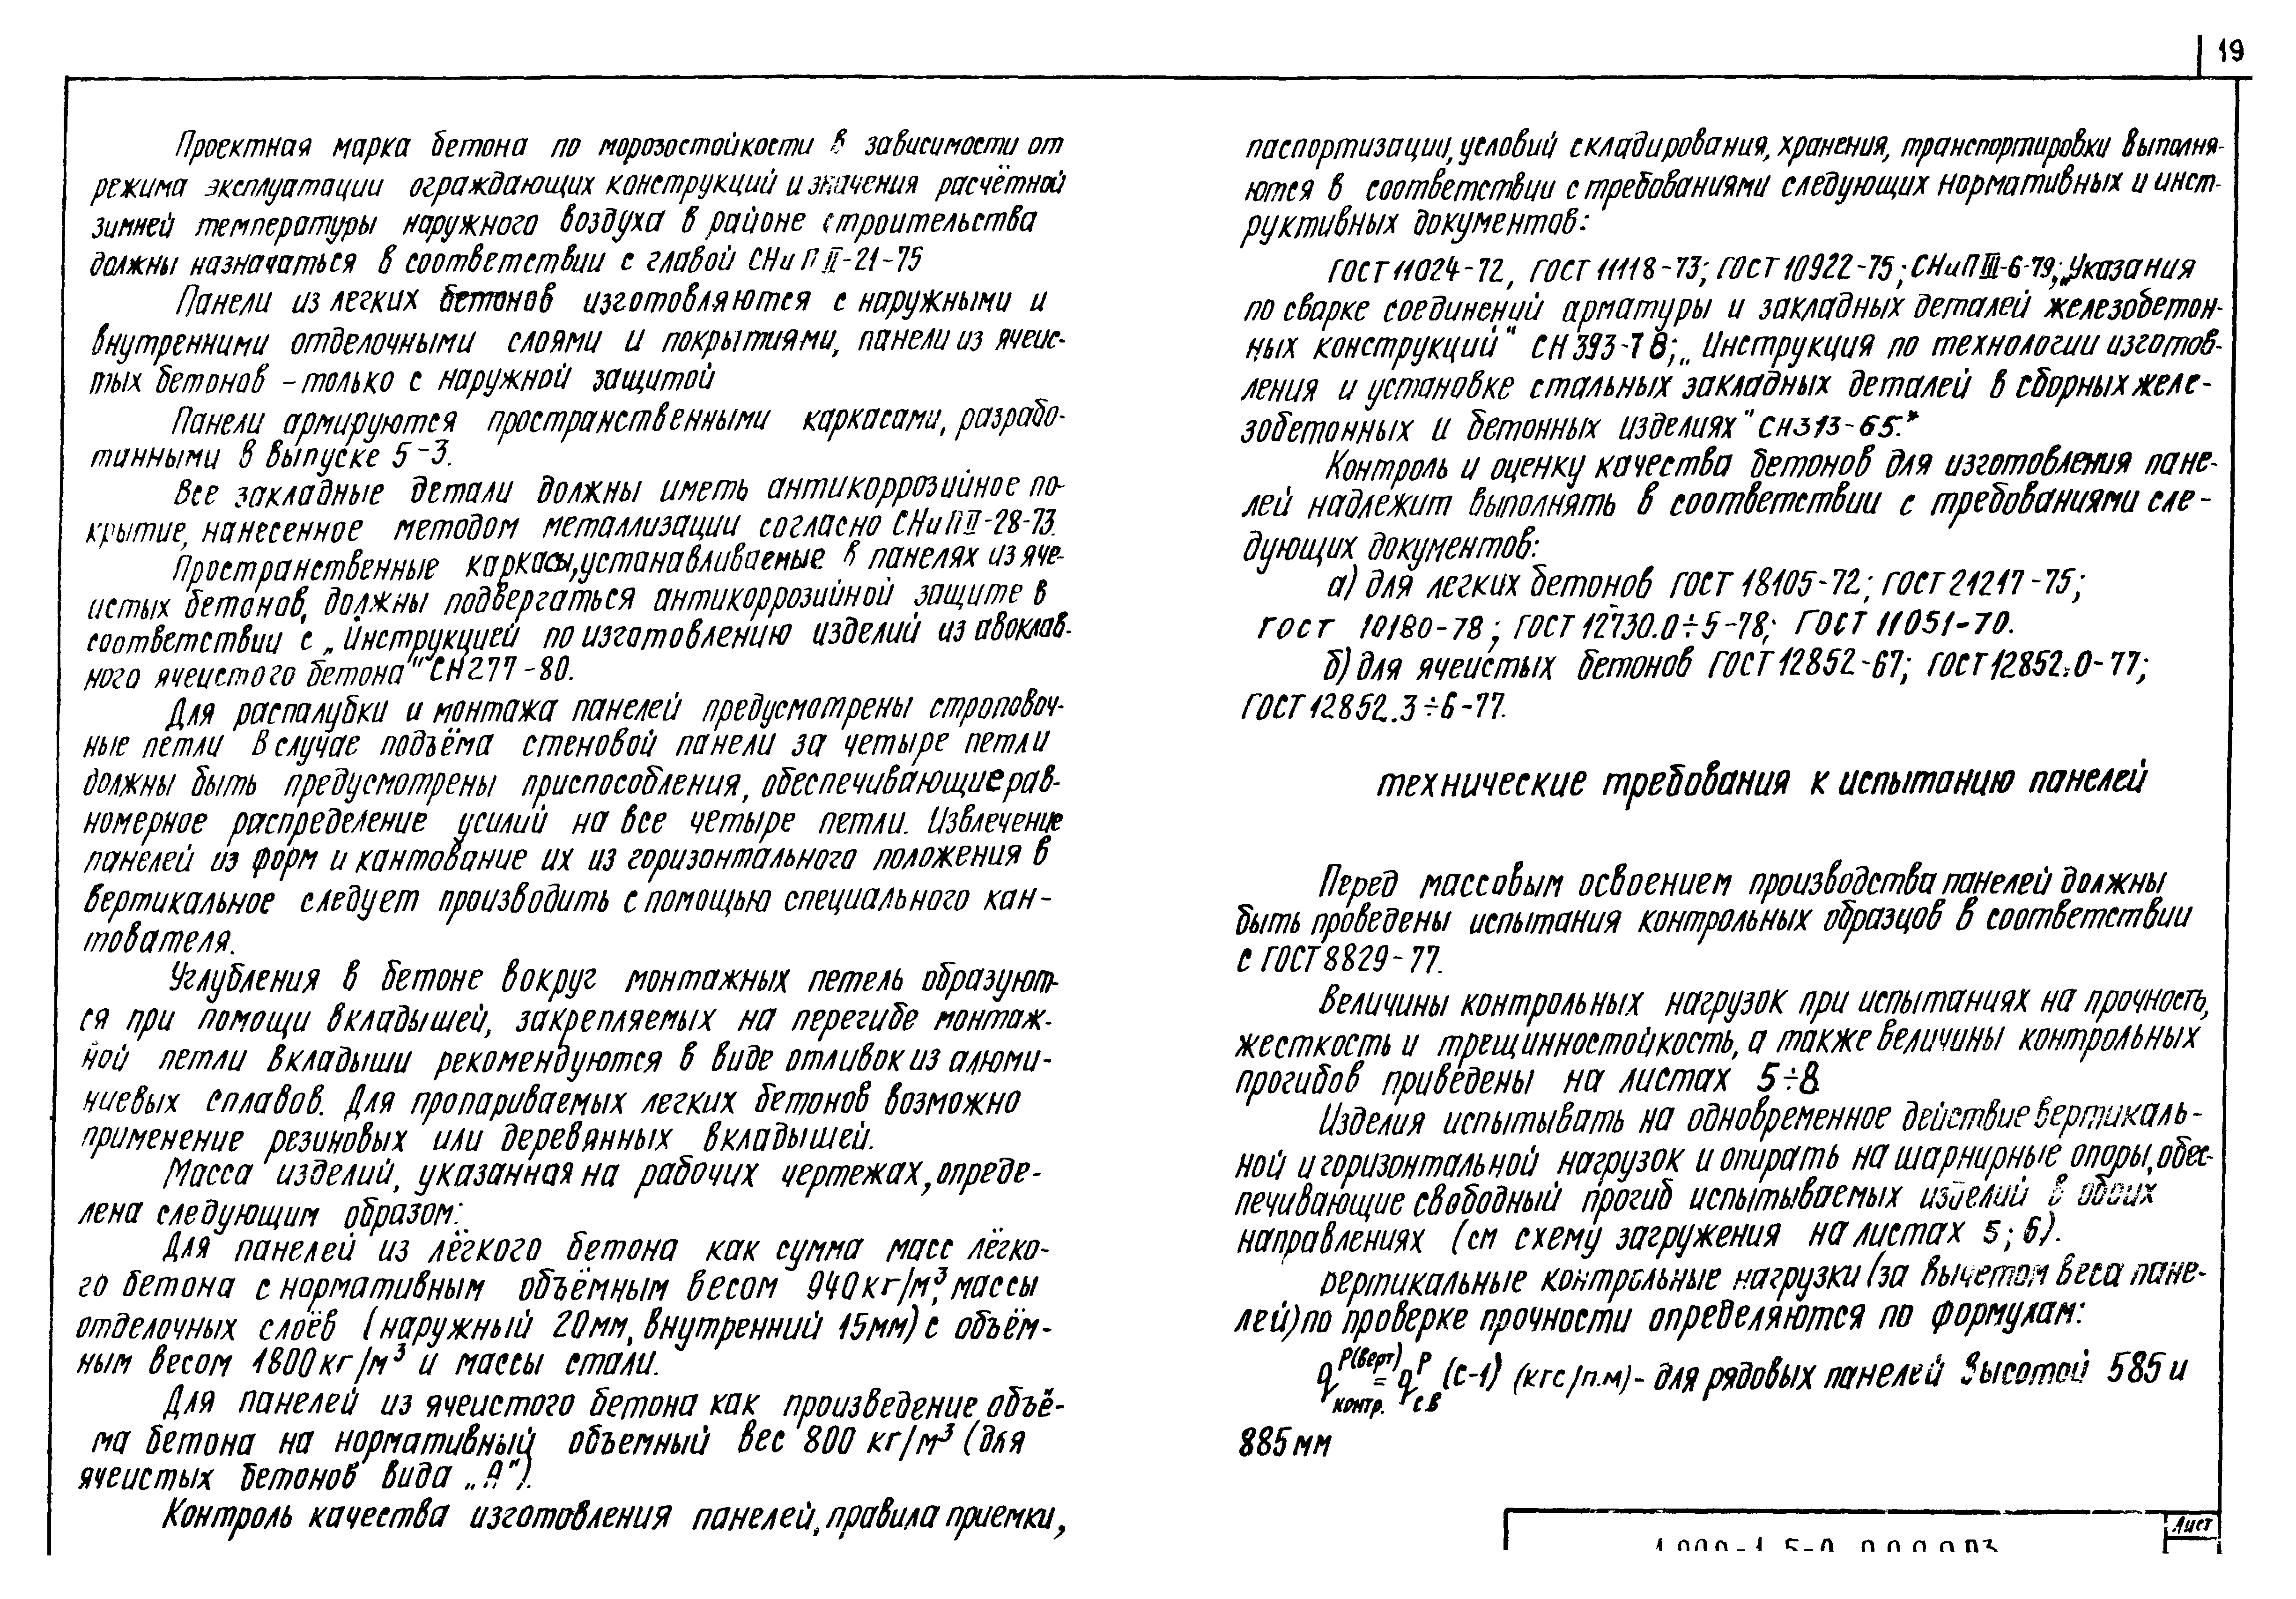 19
Проектная марка бетона по морозостойкости в зависимости от
режима эксплуатации ограждающих конструкций и значения расчётной
зимней температуры наружного воздуха в районе строительства
должны назначаться в соответствии с главой СНиП II-21-75
Панели из легких бетонов изготовляются с наружными и
внутренними отделочными слоями и покрытиями, панели из ячеис-
тых бетонов – только с наружной защитой
Панели армируются пространственными каркасами, разрабо-
танными в выпуске 5-3.
Все закладные детали должны иметь антикоррозийное по-
крытие, нанесенное методом металлизации согласно СНиП II-28-73.
Пространственные каркасы, устанавливаемые в панелях из яче-
истых бетонов, должны подвергаться антикоррозийной защите в
соответствии с „Инструкцией по изготовлению изделий из авоклав-
ного ячеистого бетона" СН277-80.
Для распалубки и монтажа панелей предусмотрены строповоч-
ные петли В случае подъёма стеновой панели за четыре петли
должны быть предусмотрены приспособления, обеспечивающие рав-
номерное распределение усилий на все четыре петли. Извлечение
панелей из форм и кантование их из горизонтального положения в
вертикальное следует производить с помощью специального кан-
тователя.
Углубления в бетоне вокруг монтажных петель образуют-
ся при помощи вкладышей, закрепляемых на перегибе монтаж-
ной петли Вкладыши рекомендуются в виде отливок из алюми-
ниевых сплавов. Для пропариваемых легких бетонов возможно
применение резиновых или деревянных вкладышей.
Масса изделий, указанная на рабочих чертежах, опреде-
лена следующим образом:
Для панелей из лёгкого бетона как сумма масс лёгко-
го бетона с нормативным объёмным весом 940кг/м³, массы
отделочных слоёв (наружный 20мм, внутренний 15мм) с объём-
ным весом 1800кг/м³ и массы стали.
Для панелей из ячеистого бетона как произведение объё-
ма бетона на нормативный объемный вес 800 кг/м³ (для
ячеистых бетонов вида „А").
Контроль качества изготовления панелей, правила приемки,
паспортизации, условий складирования, хранения, транспортировки выполня-
ются в соответствии с требованиями следующих нормативных и инст-
руктивных документов:
ГОСТ 11024-72, ГОСТ 11118-73; ГОСТ 10922-75; СНиП III-6-79; „Указания
по сварке соединений арматуры и закладных деталей железобетон-
ных конструкций" СН 393-78; „Инструкция по технологии изготов-
ления и установке стальных закладных деталей в сборных желе-
зобетонных и бетонных изделиях" СН313-65.*
Контроль и оценку качества бетонов для изготовления пане-
лей надлежит выполнять в соответствии с требованиями сле-
дующих документов:
а) для легких бетонов ГОСТ 18105-72; ГОСТ 21217-75;
ГОСТ 10180-78; ГОСТ 12730.0÷5-78; ГОСТ 11051-70.
б) для ячеистых бетонов ГОСТ 12852-67; ГОСТ 12852.0-77;
ГОСТ 12852.3÷6-77.
технические требования к испытанию панелей
Перед массовым освоением производства панелей должны
быть проведены испытания контрольных образцов в соответствии
с ГОСТ 8829-77.
Величины контрольных нагрузок при испытаниях на прочность,
жесткость и трещинностойкость, а также величины контрольных
прогибов приведены на листах 5÷8
Изделия испытывать на одновременное действие вертикаль-
ной и горизонтальной нагрузок и опирать на шарнирные опоры, обес-
печивающие свободный прогиб испытываемых изделий в обоих
направлениях (см схему загружения на листах 5; 6).
Вертикальные контрольные нагрузки (за вычетом веса пане-
лей) по проверке прочности определяются по формулам:
q контр. P(верт) = q св P (с-1) (кгс/п.м) - для рядовых панелей высотой 585 и
885мм
Лист